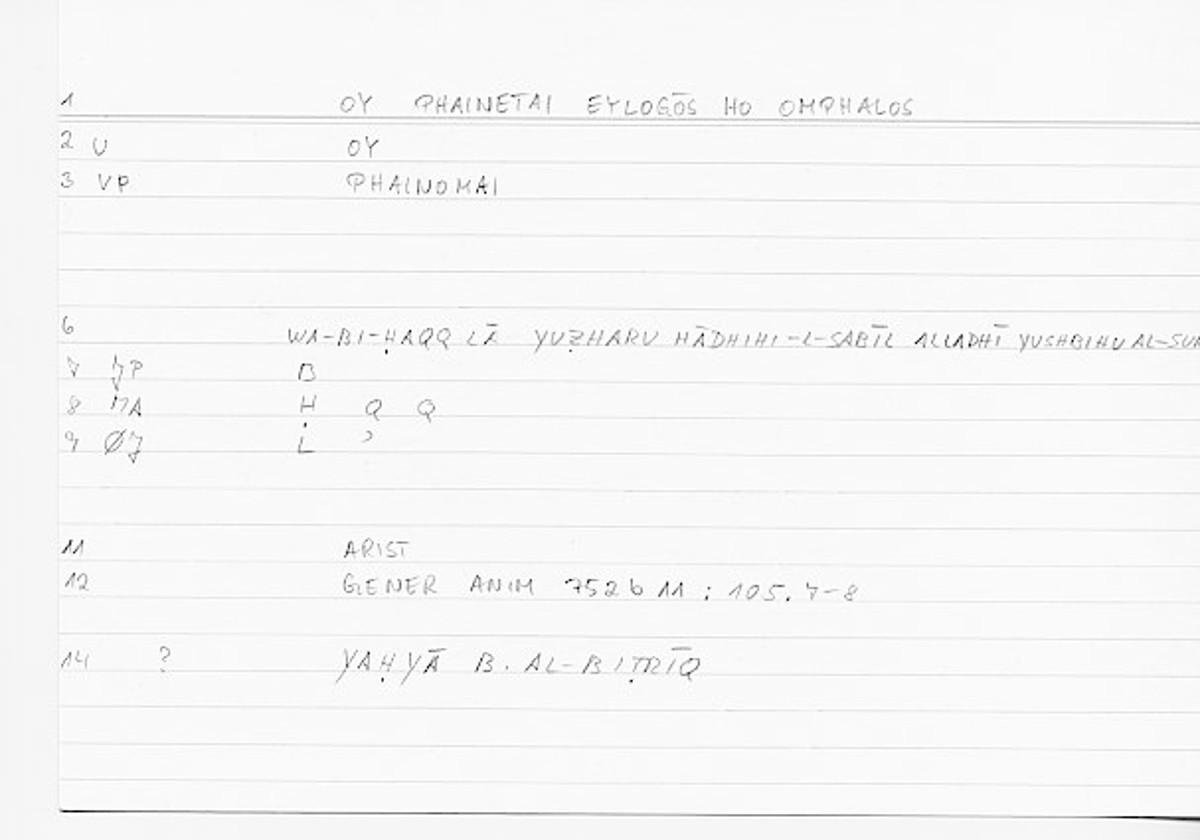 1 OY PHAINETAI EYLOGŌS HO OMPHALOS
2 U OY
3 VP PHAINOMAI
6 WA-BI-ḤAQQ LĀ YUẒHARU HĀDHIHI-L-SABĪL ALLADHĪ YUSHBIHU AL-SUR
7 P B
8 A Ḥ Q Q
9 L ʾ
11 ARIST
12 GENER ANIM 752 b 11 : 105.7-8
14 ? YAḤYĀ B. AL-BIṬRĪQ